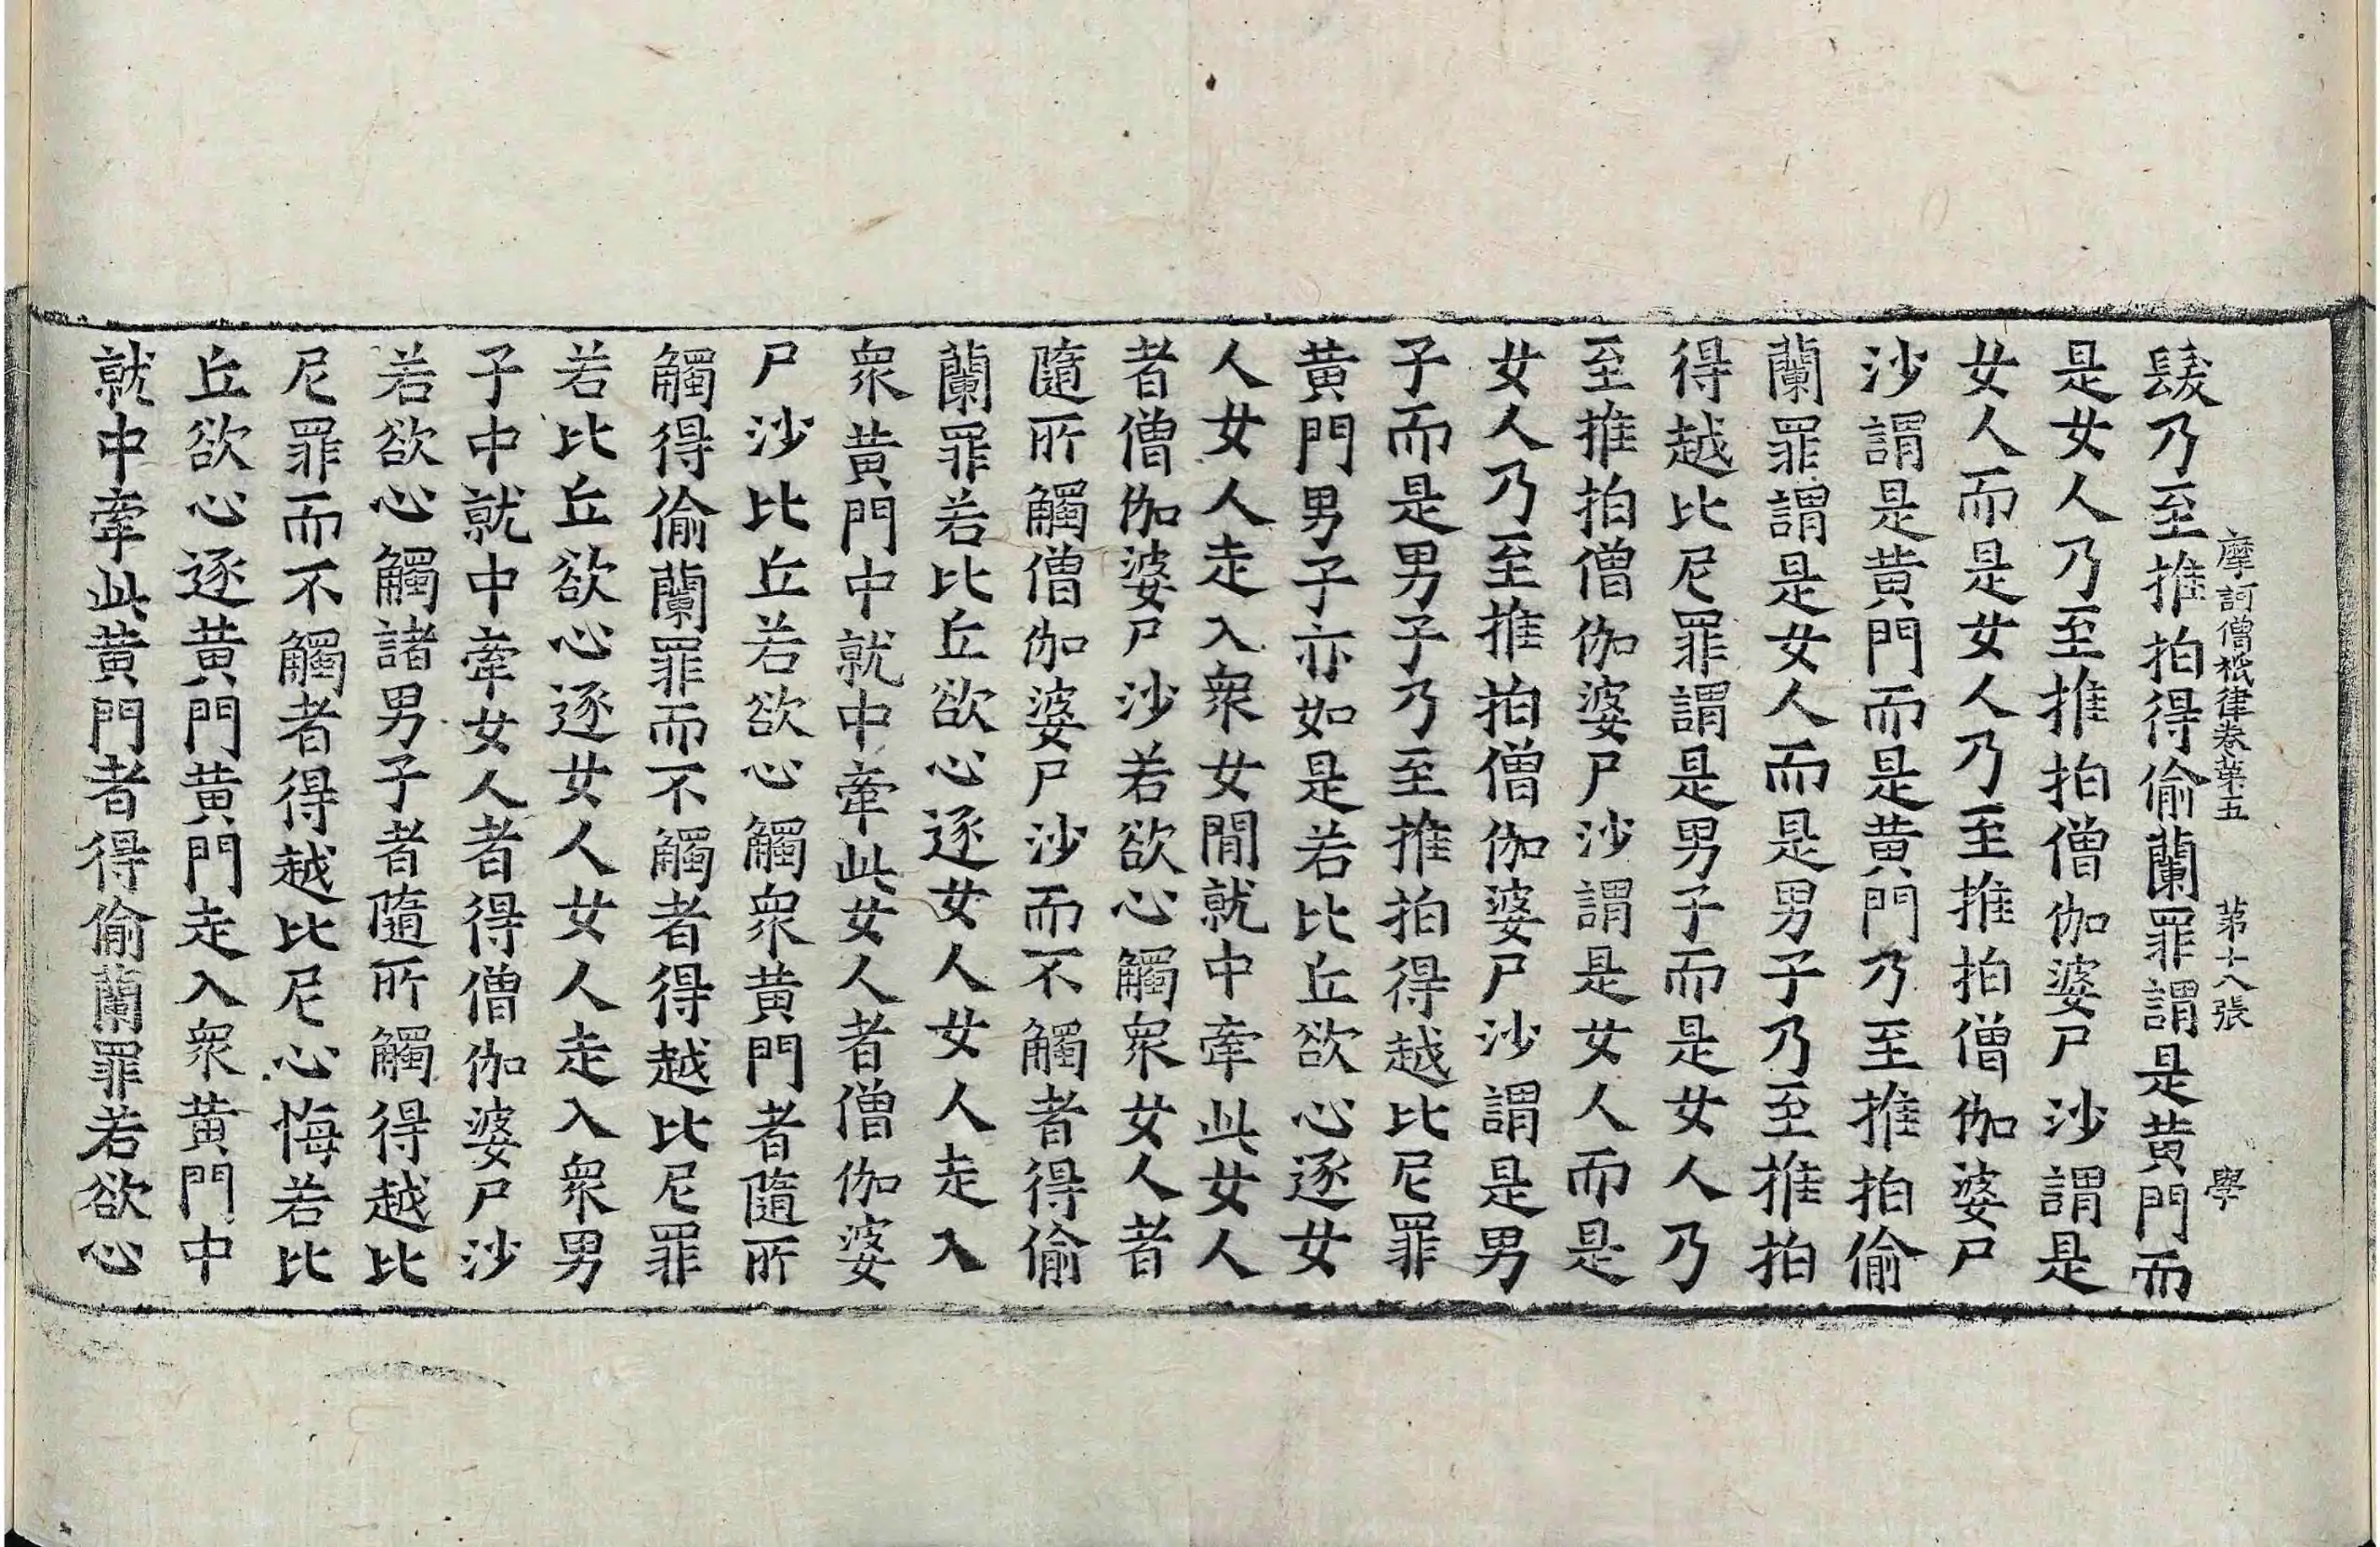 摩訶僧祇律卷第五 第十八張 學
髮乃至推拍得偷蘭罪謂是黄門而
是女人乃至推拍僧伽婆尸沙謂是
女人而是女人乃至推拍僧伽婆尸
沙謂是黄門而是黄門乃至推拍偷
蘭罪謂是女人而是男子乃至推拍
得越比尼罪謂是男子而是女人乃
至推拍僧伽婆尸沙謂是女人而是
女人乃至推拍僧伽婆尸沙謂是男
子而是男子乃至推拍得越比尼罪
黄門男子亦如是若比丘欲心逐女
人女人走入衆女間就中牽此女人
者僧伽婆尸沙若欲心觸衆女人者
隨所觸僧伽婆尸沙而不觸者得偷
蘭罪若比丘欲心逐女人女人走入
衆黄門中就中牽此女人者僧伽婆
尸沙比丘若欲心觸衆黄門者隨所
觸得偷蘭罪而不觸者得越比尼罪
若比丘欲心逐女人女人走入衆男
子中就中牽女人者得僧伽婆尸沙
若欲心觸諸男子者隨所觸得越比
尼罪而不觸者得越比尼心悔若比
丘欲心逐黄門黄門走入衆黄門中
就中牽此黄門者得偷蘭罪若欲心